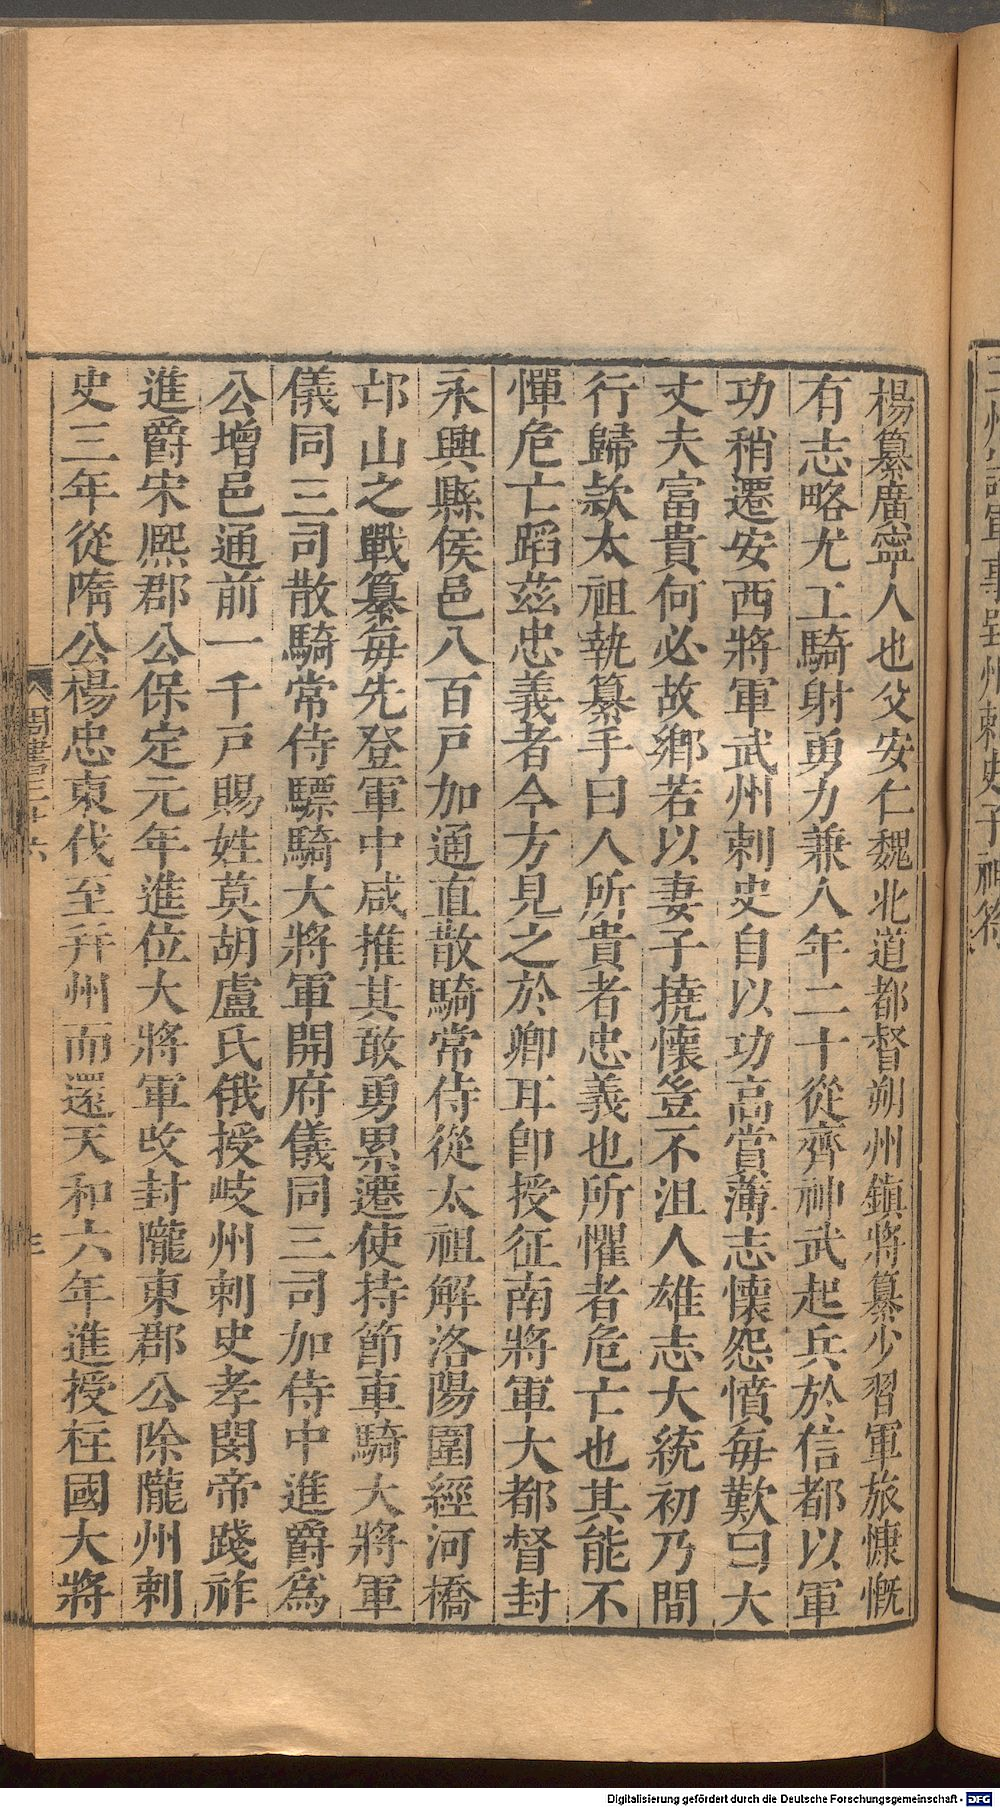 楊纂廣寧人也父安仁魏北道都督朔州鎮將纂少習軍旅慷慨
有志略尤工騎射勇力兼人年二十從齊神武起兵於信都以軍
功稍遷安西將軍武州刺史自以功高賞薄志懷怨憤每歎曰大
丈夫富貴何必故鄉若以妻子撓懷豈不沮人雄志大統初乃間
行歸款太祖執纂手曰人所貴者忠義也所懼者危亡也其能不
憚危亡蹈茲忠義者今方見之於卿耳即授征南將軍大都督封
永興縣侯邑八百戶加通直散騎常侍從太祖解洛陽圍經河橋
邙山之戰纂每先登軍中咸推其敢勇累遷使持節車騎大將軍
儀同三司散騎常侍驃騎大將軍開府儀同三司加侍中進爵為
公增邑通前一千戶賜姓莫胡盧氏俄授岐州刺史孝閔帝踐祚
進爵宋熙郡公保定元年進位大將軍改封隴東郡公除隴州刺
史三年從隋公楊忠東伐至并州而還天和六年進授柱國大將
周書三十六
Digitalisierung gefördert durch die Deutsche Forschungsgemeinschaft - DFG